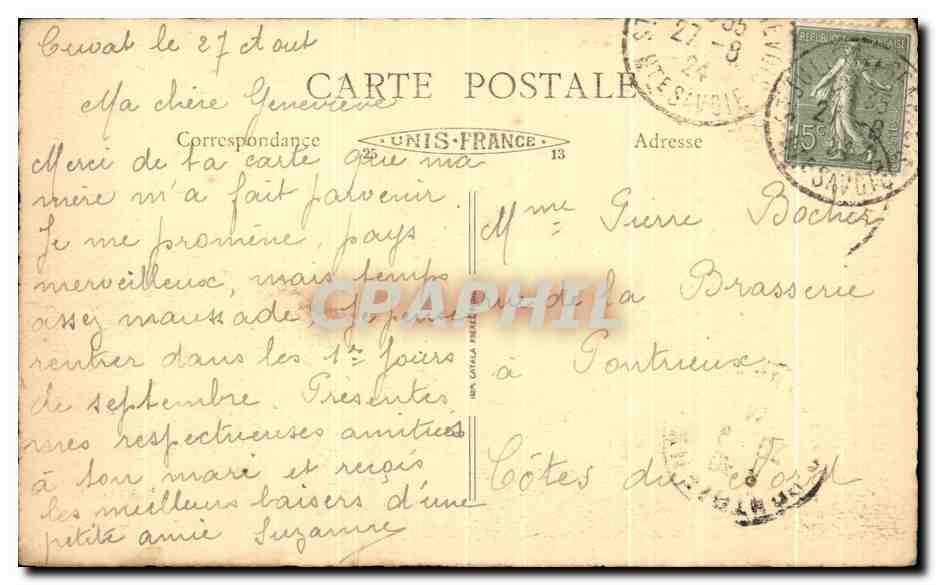 Cuvat le 27 Aout
CARTE POSTALE
Ma chère Geneviève
Correspondance
UNIS-FRANCE
25 13
Adresse
Merci de ta carte que ma
mère m'a fait parvenir
Je me promène, pays
merveilleux, mais temps
assez maussade. Je pense
rentrer dans les 1ers Jours
de septembre. Présentes
mes respectueuses amitiés
à ton mari et reçois
les meilleurs baisers d'une
petite amie Suzanne
IMP. CATALA FRÈRES
Mme Pierre Bocher
rue de la Brasserie
à Pontrieux
Côtes du Nord
27 -8
24
HTE SAVOIE
REPUBLIQUE FRANÇAISE
15c
SAVOIE
CPAPHIL